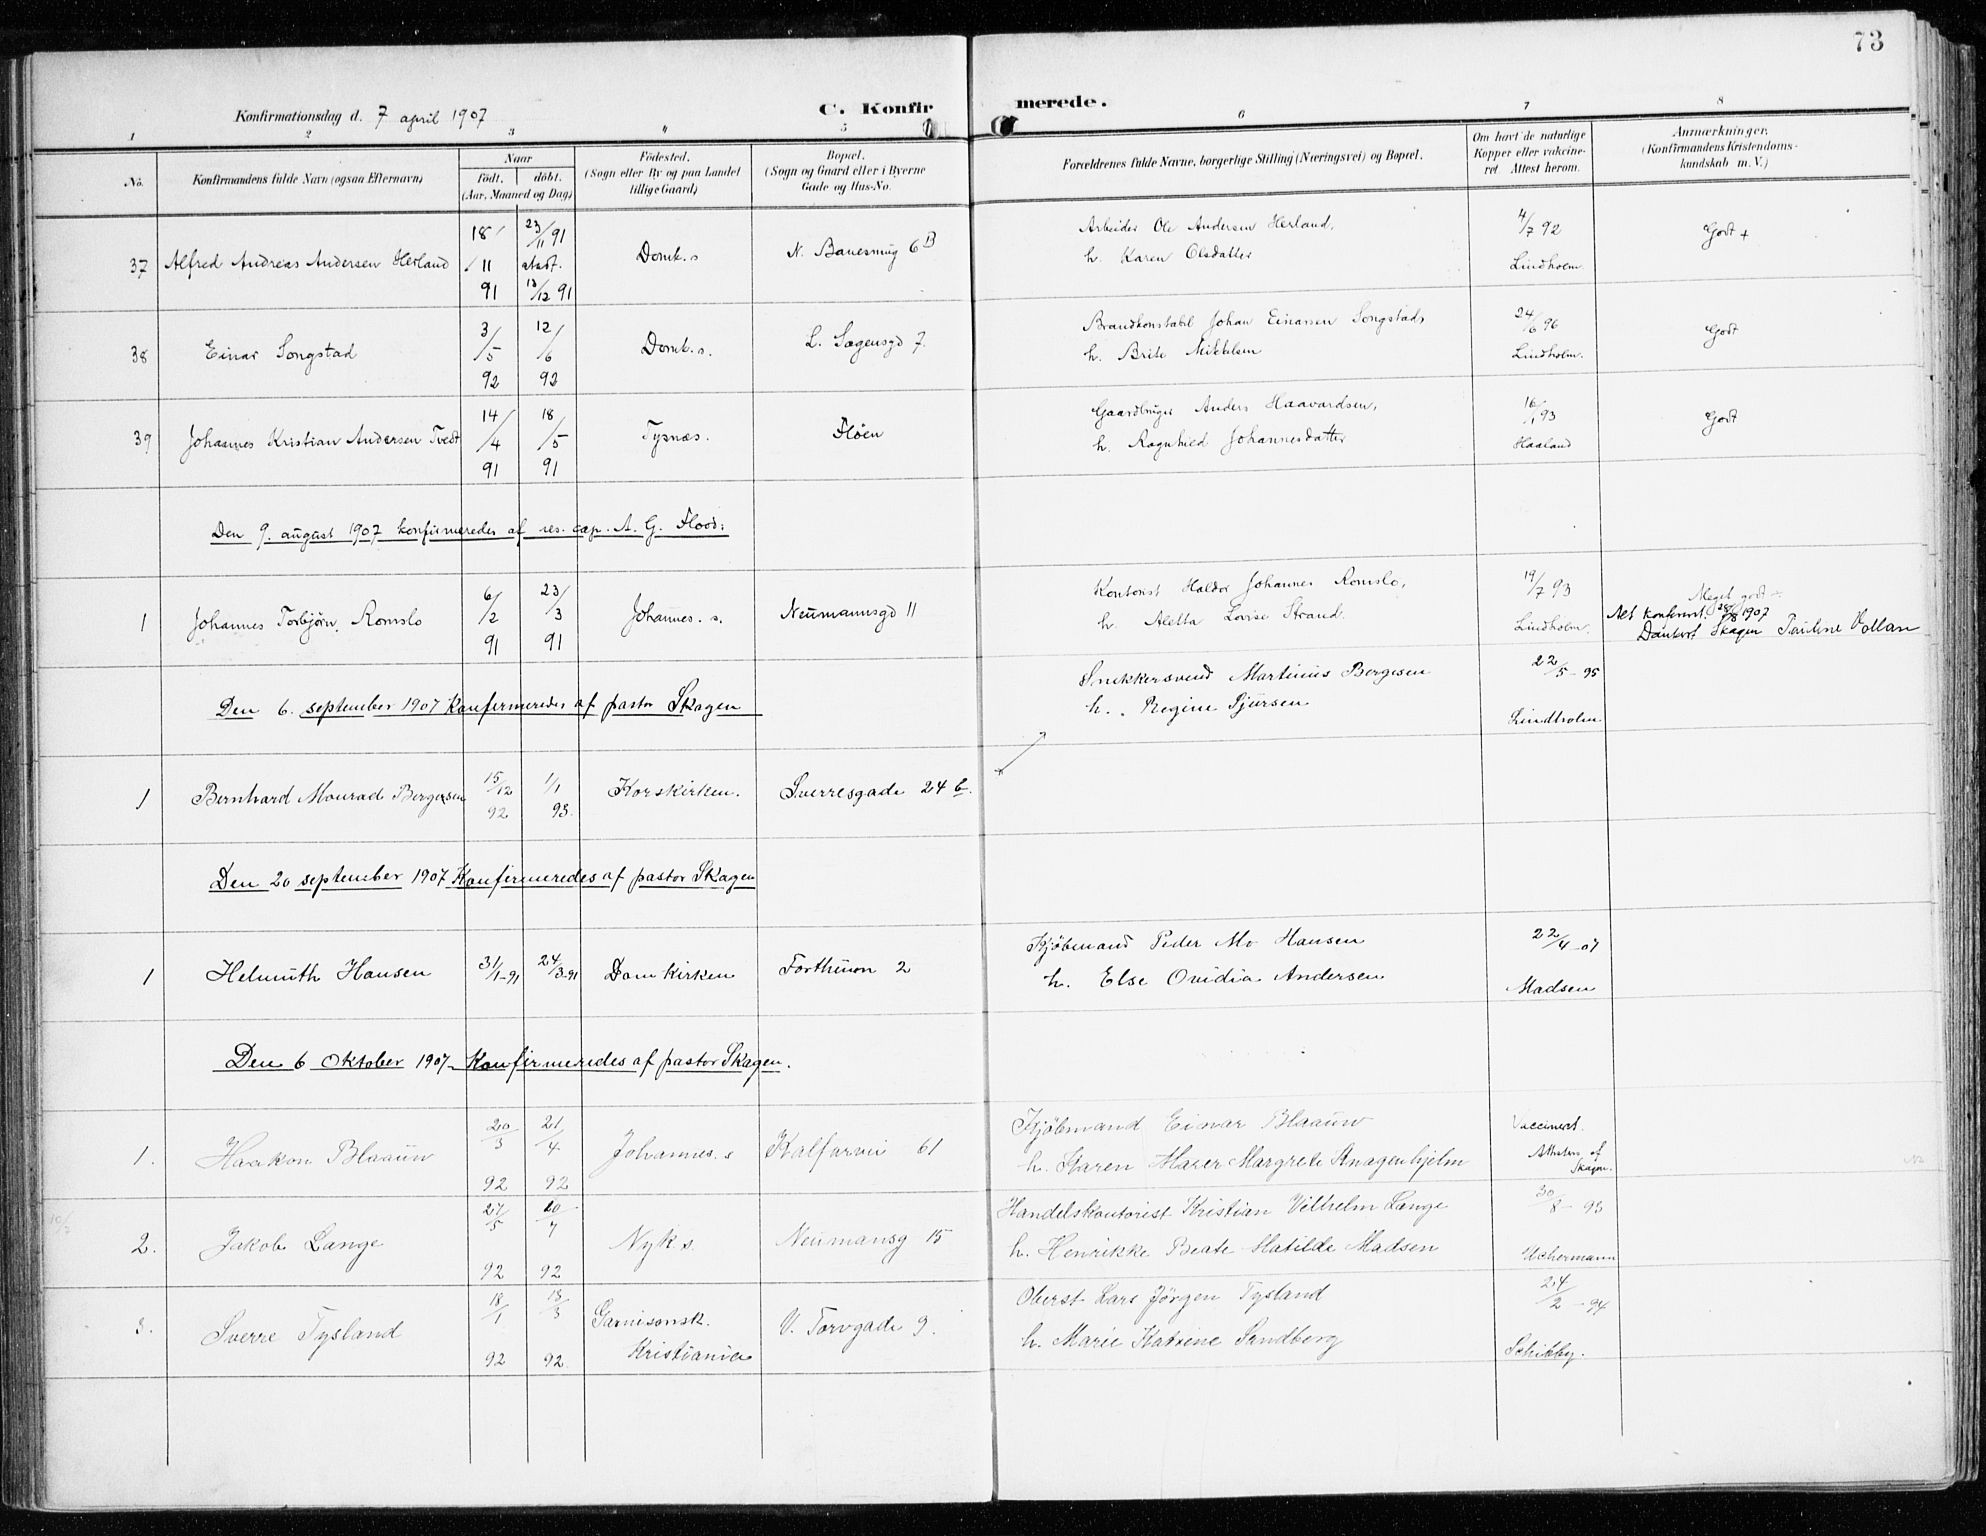 73
Konfirmationsdag d. 7 april 1907
C. Konfirmerede.
1 2 3 4 5 6 7 8
No.
Konfirmandens fulde Navn (ogsaa Efternavn)
Naar
født. døbt.
(Aar, Maaned og Dag)
Fødested.
(Sogn eller By og paa Landet
tillige Gaard)
Bopæl.
(Sogn og Gaard eller i Byerne
Gade og Hus-No.
Forældrenes fulde Navne, borgerlige Stilling (Næringsvei) og Bopæl.
Om havt de naturlige
Kopper eller vakcine-
ret. Attest herom.
Anmærkninger.
(Konfirmandens Kristendoms-
kundskab m. V.)
37 Alfred Andreas Andersen Herland 18/11 91 23/11 91 13/12 91 Domk.s N. Banesmug 6B
Arbeider Ole Andersen Herland,
h. Karen Olsdatter
4/7 92 Lindholm Godt +
38 Einar Songstad 3/5 92 12/6 92 Domk.s. L. Sagensgd 7.
Brandkonstabel Johan Einarsen Songstad,
h. Brite Mikkelsen
24/6 96 Lindholm. Godt
39 Johannes Kristian Andersen Tvedt 14/4 91 18/5 91 Tysnæs. Fløen
Gaardbruger Anders Haavardsen,
h. Ragnhild Johannesdatter
16/1 93 Haaland Godt
Den 9. august 1907 konfirmeredes af res. cap. A. G. Flood:
1 Johannes Torbjørn Romslo 6/2 91 23/3 91 Johannes. s. Neumannsgd 11
Kontorist Haldor Johannes Romslo,
h. Aletta Lovise Strand.
19/7 93 Lindholm. Meget godt
Act konferert. 28/8 1907
Dankert Skagen Pauline Vollan
Den 6. september 1907 Konfirmeredes af pastor Skagen
Snekkersvend Martinus Bergesen
h. Regine Sjursen
22/5 - 95
Lindholm
1 Bernhard Monrad Bergesen 15/12 92 1/1 93. Korskirken. Sverresgade 24 b.
Den 20 september 1907 Konfirmeredes af pastor Skagen
1 Helmuth Hansen 31/1-91 24/3-91 Domkirken Forthunon 2
Kjøbmand Peder Mo Hansen
h. Else Ovidia Andersen
22/4-07
Madsen
Den 6 Oktober 1907 Konfirmeredes af pastor Skagen.
1. Haakon Blaauw 20/3 92 21/4 92 Johannes. s Kalfarvei 61
Kjøbmand Einar Blaauw
h. Karen Maser Margrete Knagenhjelm
Vaccinert.
Attesten af
Skagen.
2. Jakob Lange 27/5 92 20/7 92 Nyk s. Neumansg 15
Handelskontorist Kristian Vilhelm Lange
h. Henrikke Beate Matilde Madsen
30/8 - 93
Uchermann
3. Sverre Tysland 18/1 92 13/3 92. Garnisonsk.
Kristiania V. Torvgade 9.
Oberst Lars Jörgen Tysland
h. Marie Katrine Sandberg
24/2 - 94
Schibby.